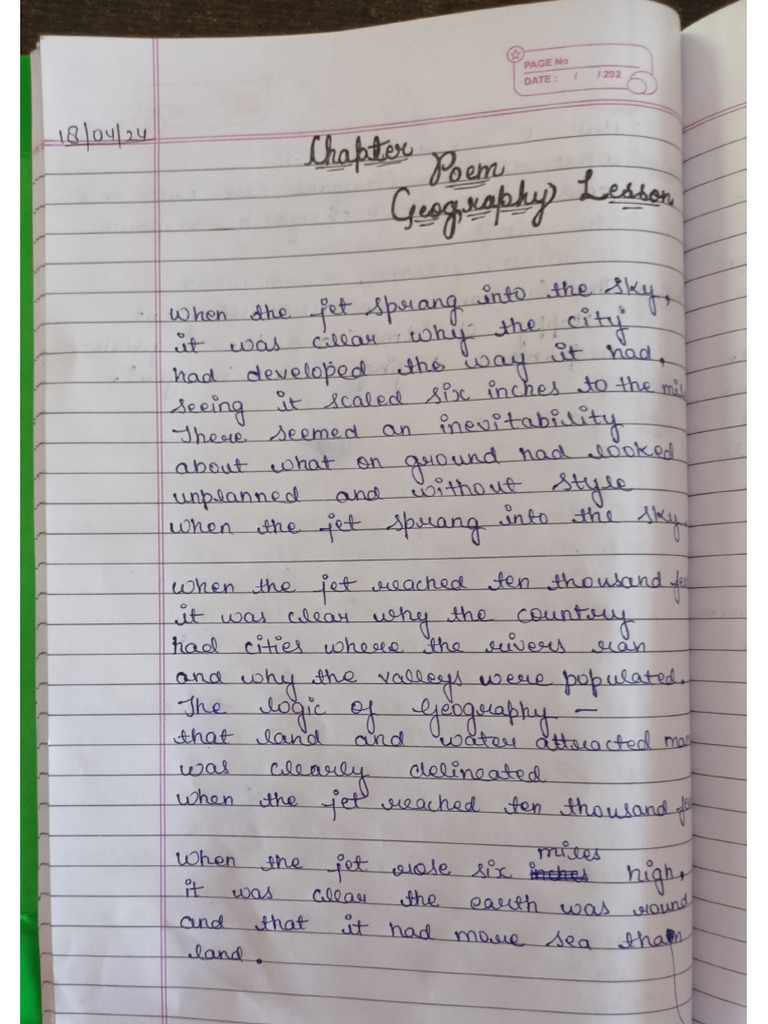 PAGE No
DATE : / / 202
18/04/24
Chapter
Poem
Geography Lesson
When the jet sprang into the sky,
it was clear why the city
had developed the way it had,
seeing it scaled six inches to the
There seemed an inevitability
about what on ground had looked
unplanned and without style
when the jet sprang into the sky.
When the jet reached ten thousand
it was clear why the country
had cities where the rivers ran
and why the valleys were populated.
The logic of Geography —
that land and water attracted
was clearly delineated
when the jet reached ten thousand
miles
When the jet rose six inches high,
it was clear the earth was round
and that it had more sea than
land.